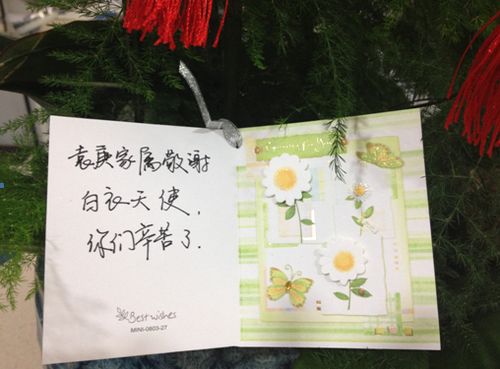 袁庚家属敬谢
白衣天使,
你们辛苦了.
Best wishes
MINI-0803-27